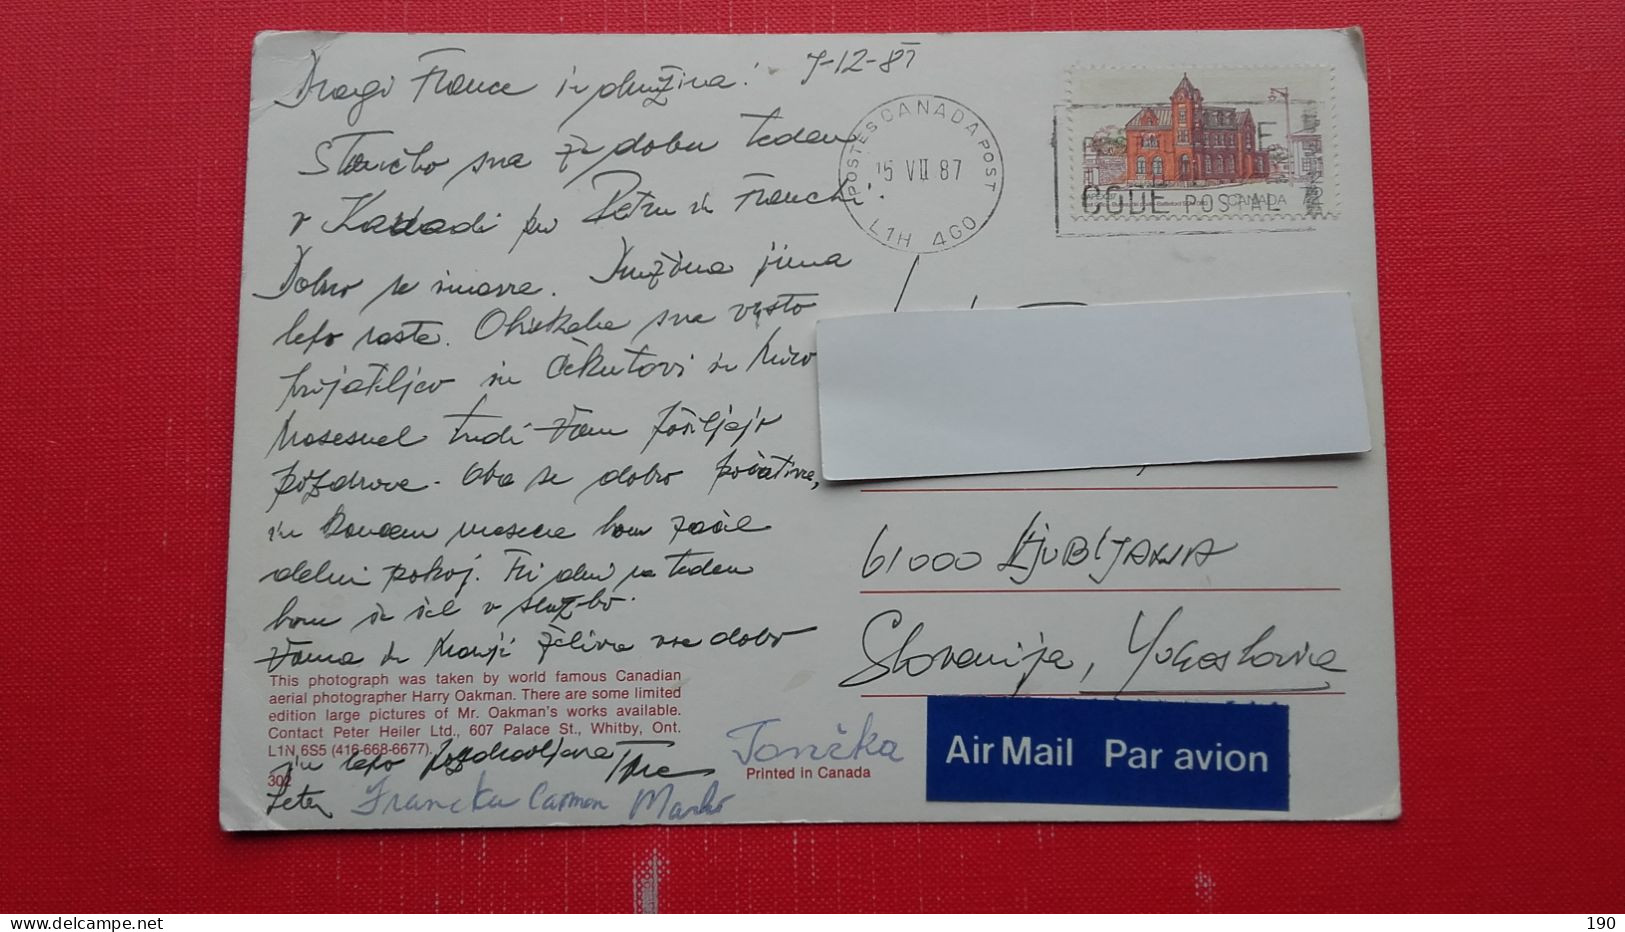 Dragi France in družina! 7-12-87
Stančko sva že dober teden
v Kanadi pri Petru in Francki.
Dobro se imava. Družina jima
lepo raste. Obiskala sva vrsto
prijateljev in Čekutovi in Miro
tudi Vam pošiljajo
pozdrave. Oba se dobro počutiva,
in koncem meseca bom začel
delni pokoj. Tri dni na teden
bom še šel v službo.
Vama in Mariji želiva vse dobro
in lepo pozdravljena Tone
Peter Francka Carmen Marko
Tončka
POSTES CANADA POST
15 VII 87
L1H 4G0
CODE POSTAL
CANADA
61000 LJUBLJANA
Slovenija, Yugoslavia
This photograph was taken by world famous Canadian
aerial photographer Harry Oakman. There are some limited
edition large pictures of Mr. Oakman's works available.
Contact Peter Heiler Ltd., 607 Palace St., Whitby, Ont.
L1N 6S5 (416-668-6677).
302
Printed in Canada
Air Mail Par avion
190